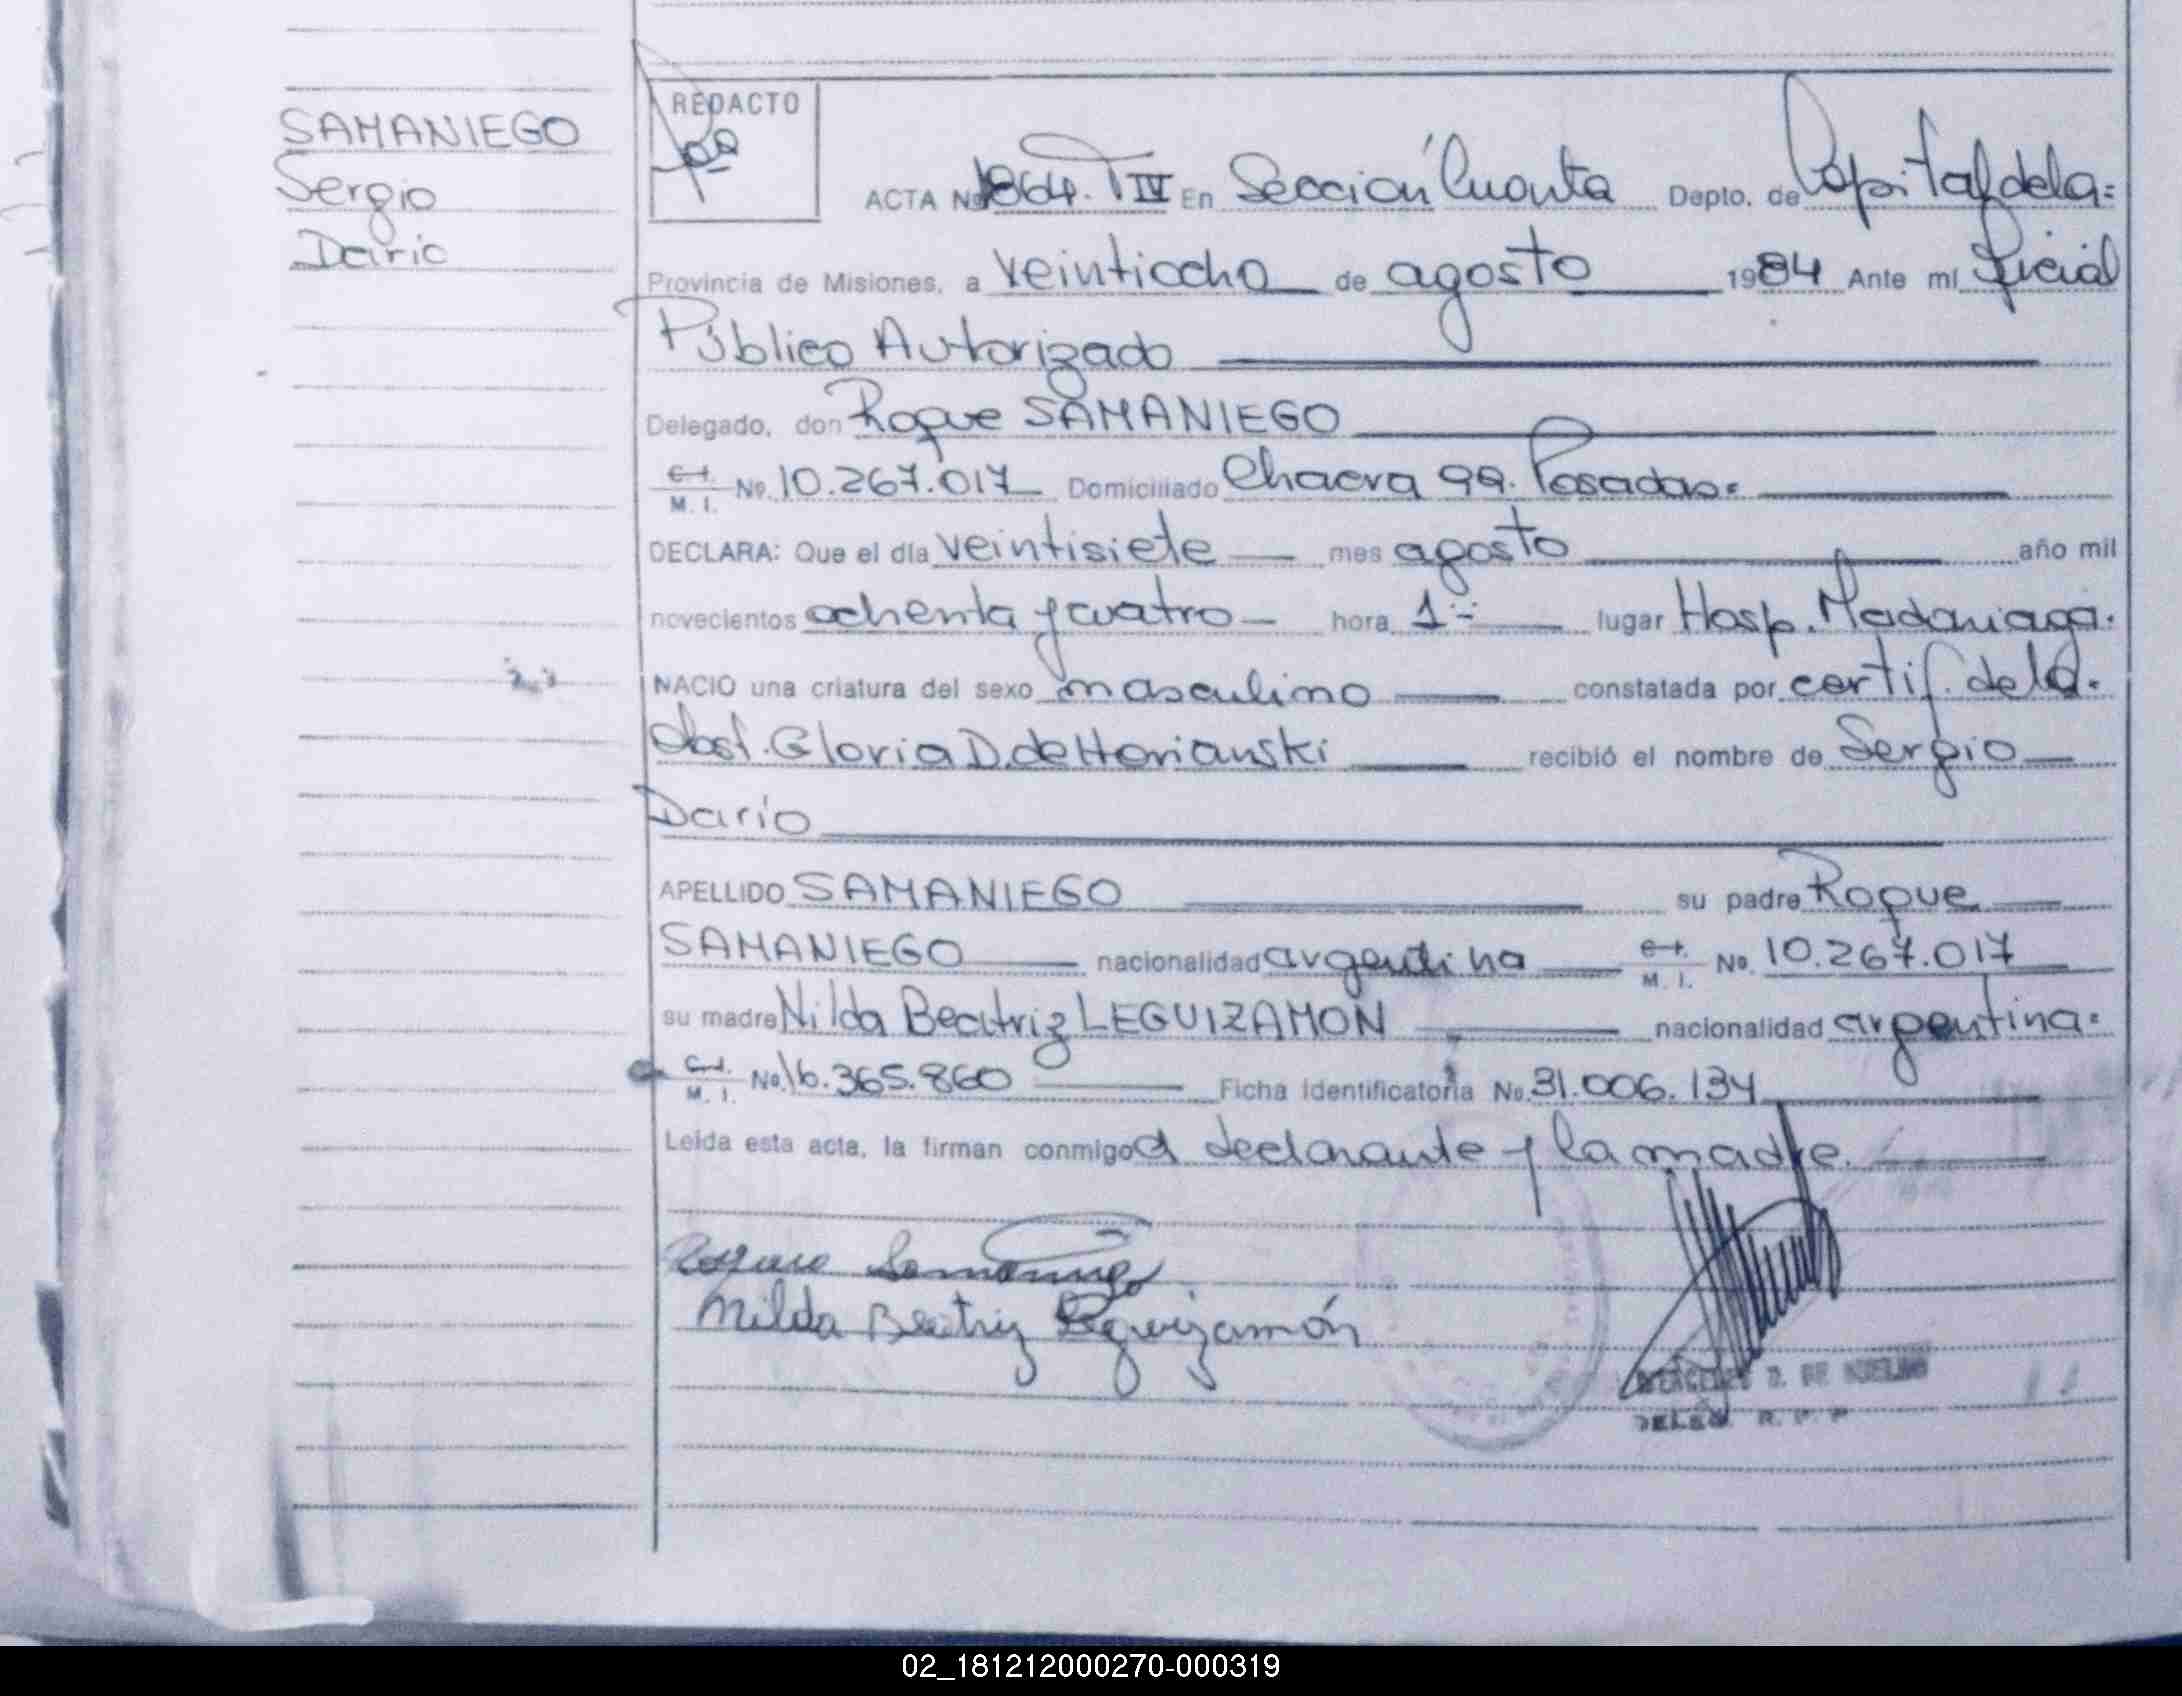 SAMANIEGO
Sergio
Dario
REDACTO
ACTA No 1864. T IV En Sección Cuarta Depto. de Capital de la=
Provincia de Misiones, a veintiocho de agosto 1984 Ante mí Oficial
Público Autorizado
Delegado, don Roque SAMANIEGO
C.I. M. I. No. 10.267.017 Domiciliado Chacra 99. Posadas=
DECLARA: Que el día veintisiete mes agosto año mil
novecientos ochenta y cuatro hora 1 lugar Hosp. Madariaga.
NACIO una criatura del sexo masculino constatada por certif. de la.
obst. Gloria D. de recibió el nombre de Sergio
Darío
APELLIDO SAMANIEGO su padre Roque
SAMANIEGO nacionalidad argentina C.I. M. I. No. 10.267.017
su madre Nilda Beatriz LEGUIZAMÓN nacionalidad argentina=
C.I. M. I. No. 16.365.860 Ficha Identificatoria No. 31.006.134
Leída esta acta, la firman conmigo el declarante y la madre.
Roque Samaniego
Nilda Beatriz Leguizamón
DELEG. R. P. P
02_181212000270-000319